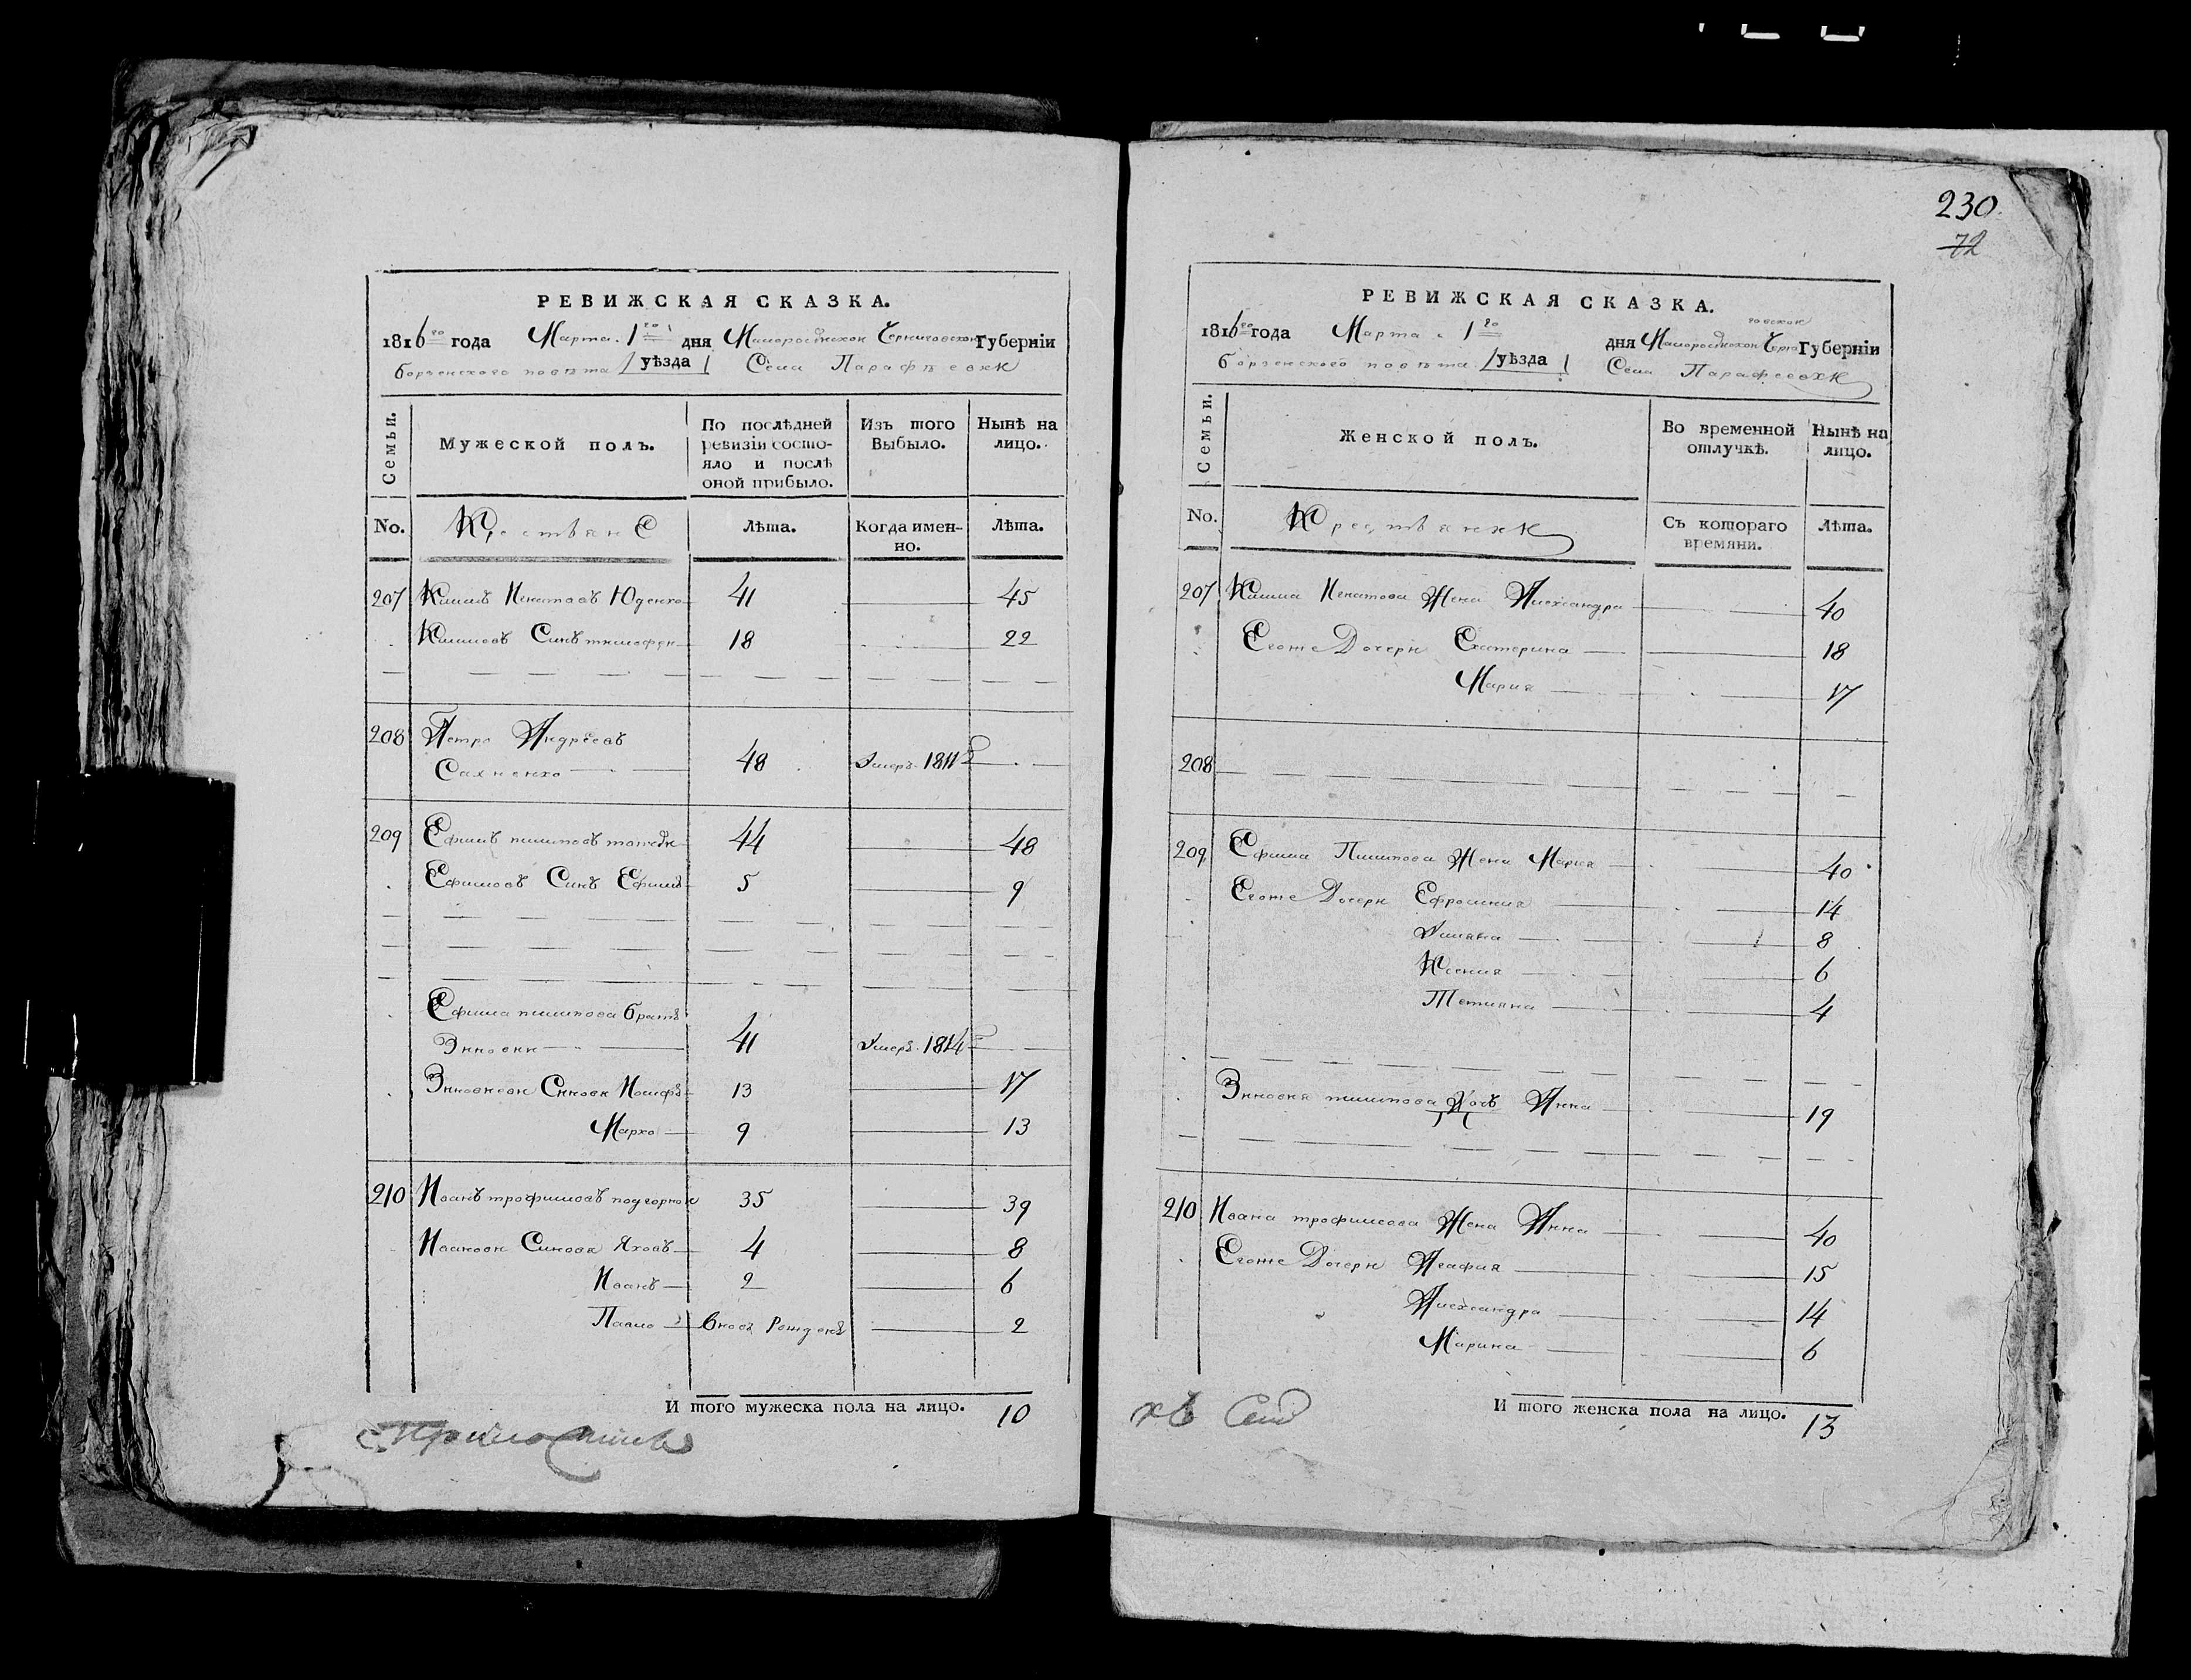 230
72
РЕВИЖСКАЯ СКАЗКА.
1816го года Марта 1го дня Малоросійской Черниговской Губерніи
борзенского повѣта уѣзда Села Парафѣевки
Семьи.
Мужеской полъ.
По послѣдней ревизіи состояло и послѣ оной прибыло.
Изъ того Выбыло.
Нынѣ на лицо.
No.
Крестьяне
Лѣта.
Когда именно.
Лѣта.
207 Климъ Игнатовъ Юденко 41 45
Климовъ Синъ тимофей 18 22
208 Петро Андреевъ
48 Умеръ 1811
209 Ефимъ пилиповъ 44 48
Ефимовъ Синъ Ефимъ 5 9
Ефима пилипова братъ
Зиновий 41 Умеръ 1814
Зиновиеви Синови Иосифъ 13 17
Марко 9 13
210 Иванъ трофимовъ подгорной 35 39
Иванови Синови Яковъ 4 8
Иванъ 2 6
Павло вновь Рожденъ 2
И того мужеска пола на лицо. 10
РЕВИЖСКАЯ СКАЗКА.
1816го года Марта 1го дня Малоросійской Черниговской Губерніи
борзенского повѣта уѣзда Села Парафеевки
Семьи.
Женской полъ.
Во временной отлучкѣ.
Нынѣ на лицо.
No.
Крестьянки
Съ котораго времяни.
Лѣта.
207 Клима Игнатова Жена Александра 40
Егоже Дочери Екатерина 18
Мария 17
208
209 Ефима Пилипова Жена Мария 40
Егоже Дочери Ефросиния 14
Улияна 8
Ксения 6
Татияна 4
Зиновия пилипова Дочь Анна 19
210 Ивана трофимова Жена Анна 40
Егоже Дочери Агафия 15
Александра 14
Марина 6
И того женска пола на лицо. 13